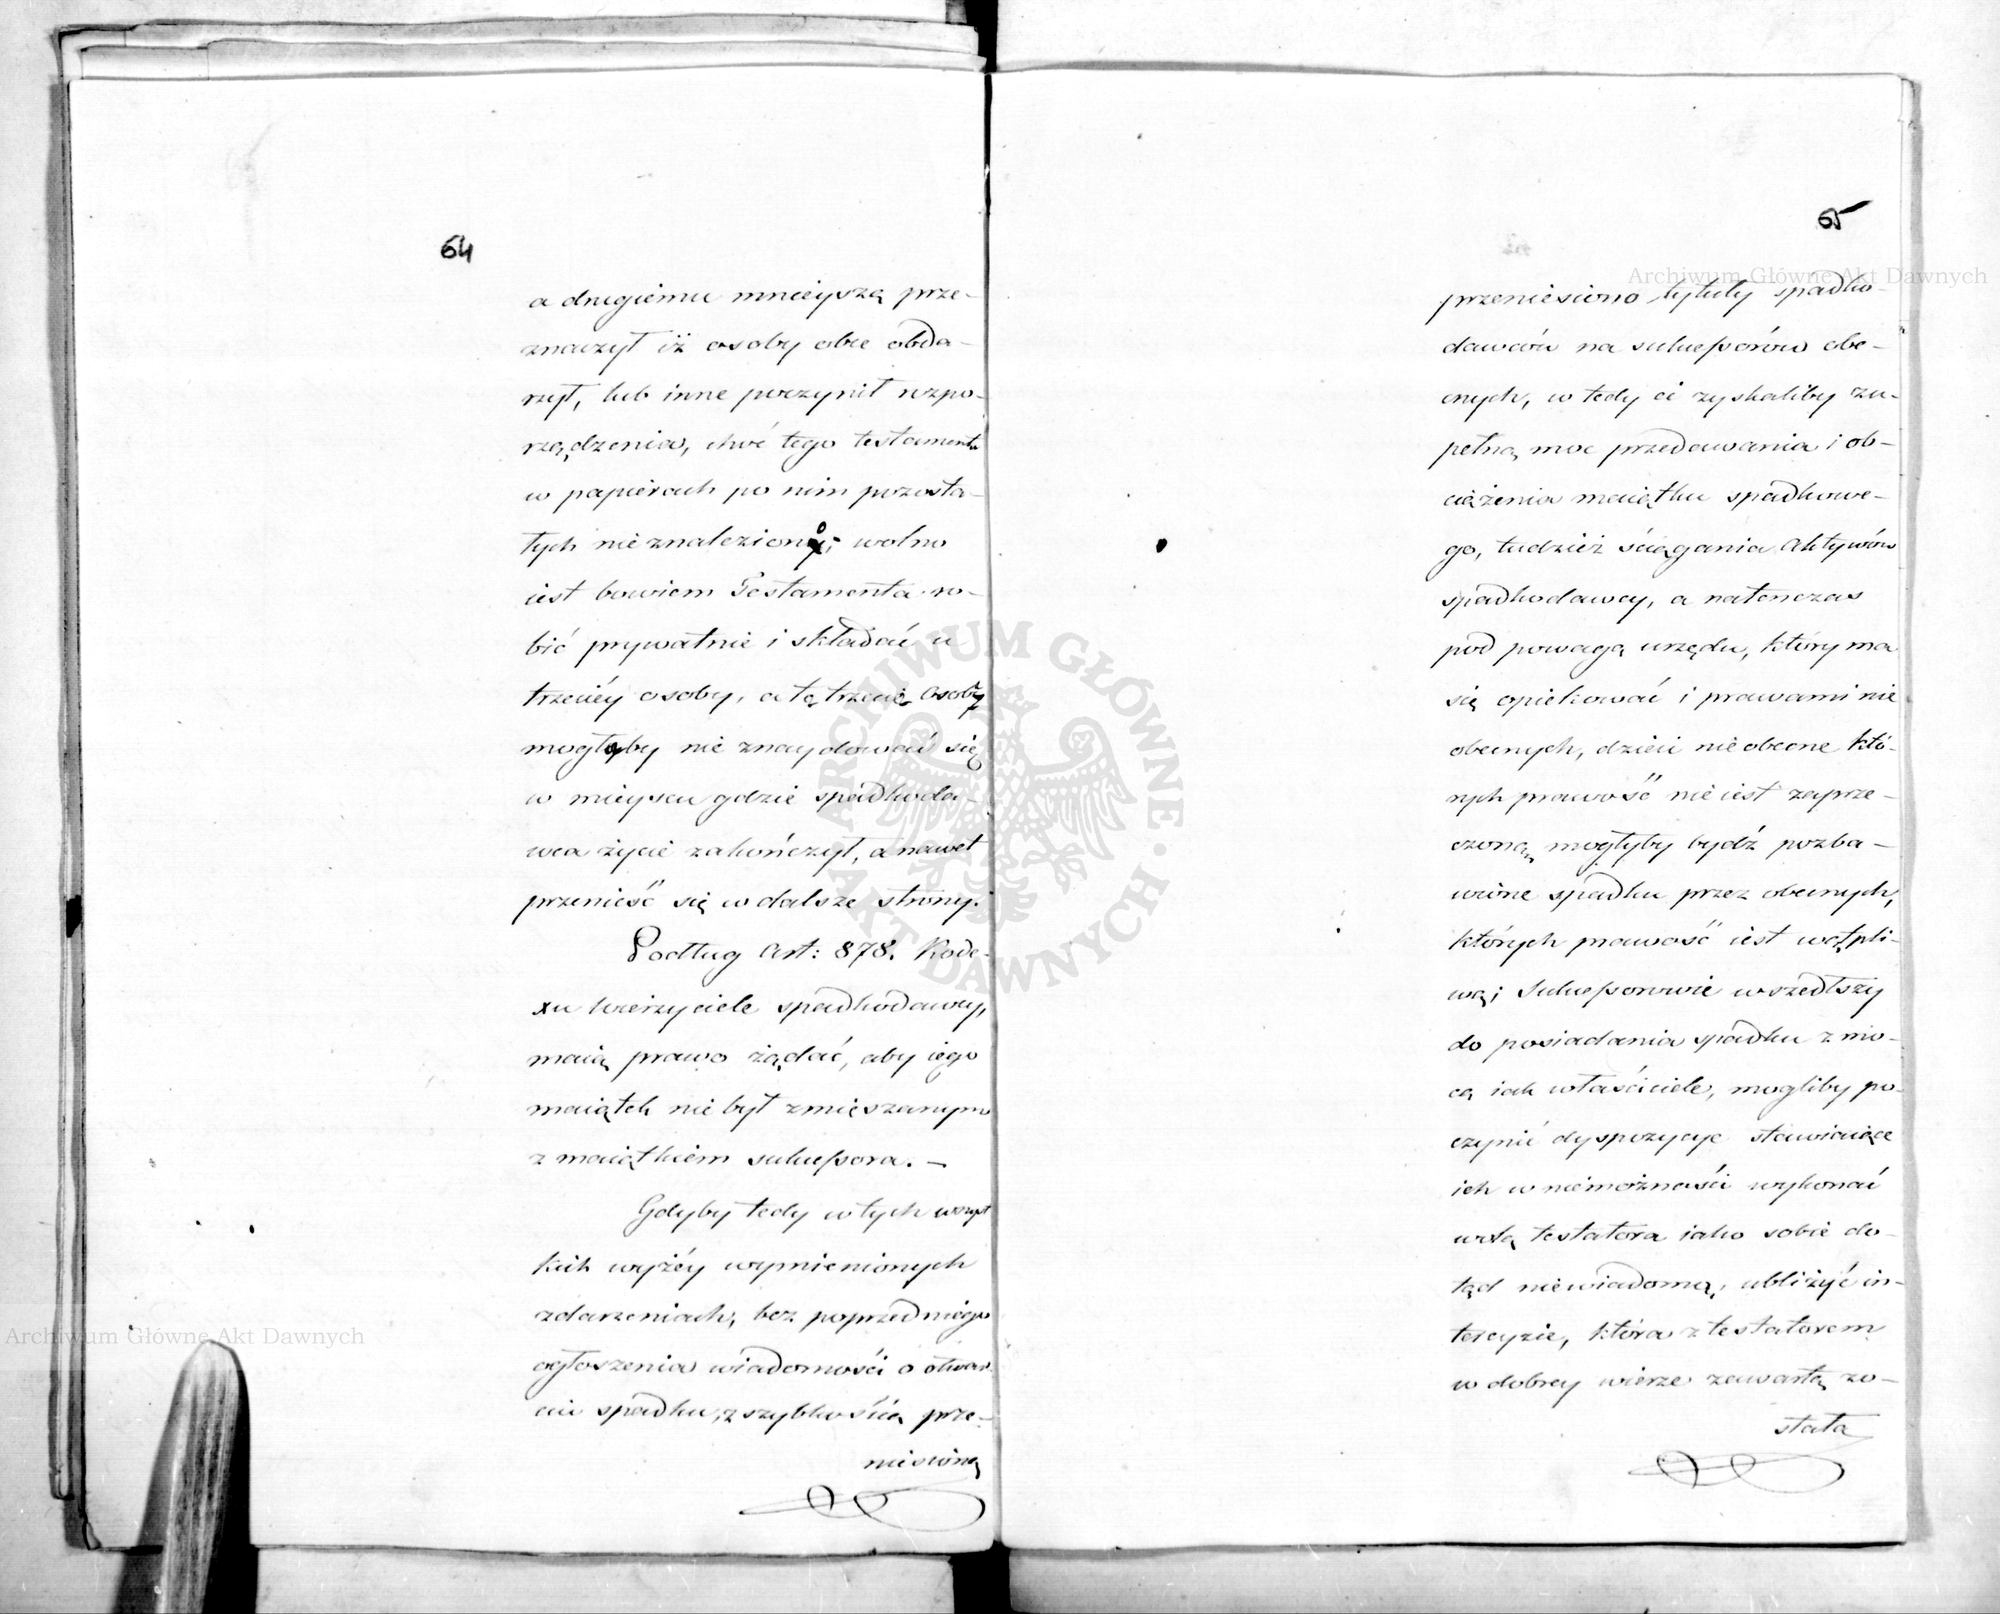 64
a drugiemu mnieyszą prze-
znaczył iż osoby obie obda-
rzył, lub inne poczynił rozpo-
rządzenia, choć tego testamentu
w papierach po nim pozosta-
łych nie znaleziono; wolno
iest bowiem Testamenta ro-
bić prywatnie i składać u
trzeciéy osoby, a tę trzecię osobę
mogłoby nie znaydować się
w mieyscu gdzie spadkoda-
wca życie zakończył, a nawet
przenieść się w dalsze strony.
Podług Art: 878. Kode-
xu wierzyciele spadkodawcy,
maią prawo żądać, aby iego
maiątek nie był zmięszanym
z maiątkiem sukcessora. —
Gdyby tedy w tych wszyst
kich wyżéy wymienionych
zdarzeniach, bez poprzedniego
ogłoszenia wiadomości o otwar
ciu spadku, z szybkością prze-
niesiono
65
przeniesiono tytuły spadko-
dawców na sukcessorów obe-
cnych, w tedy ci zyskaliby zu-
pełną moc przedawania i ob-
ciążenia maiątku spadkowe-
go, tudzież ściągania Aktywów
spadkodawcy, a natenczas
pod powagą urzędu, który ma
się opiekować i prawami nie
obecnych, dzieci nieobecne któ-
rych prawość nie iest zaprze-
czoną mogłyby bydź pozba-
wione spadku przez obecnych,
których prawość iest wątpli-
wą; Sukcessorowie wszedłszy
do posiadania spadku z mo-
cą iak właściciele, mogliby po-
czynić dyspozycye stawiaiące
ich w niemożności wykonać
wolą testatora iako sobie do-
tąd niewiadomą, ubliżyć in-
tercyzie, która z testatorem
w dobrey wierze zawartą zo-
stała
Archiwum Główne Akt Dawnych
Archiwum Główne Akt Dawnych
ARCHIWUM GŁÓWNE · AKT DAWNYCH ·